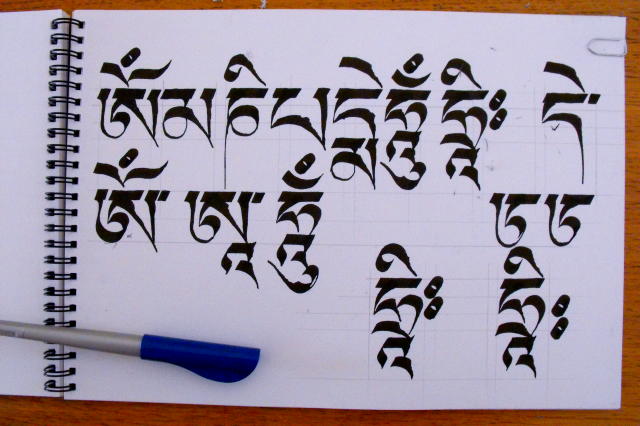 ཨོཾ མ ཎི པ དྨེ ཧཱུྃ ཧྲཱིཿ དེ་
ཨོཾ་ ཨཱ་ ཧཱུྃ
ཧྲཱིཿ ཧྲཱིཿ